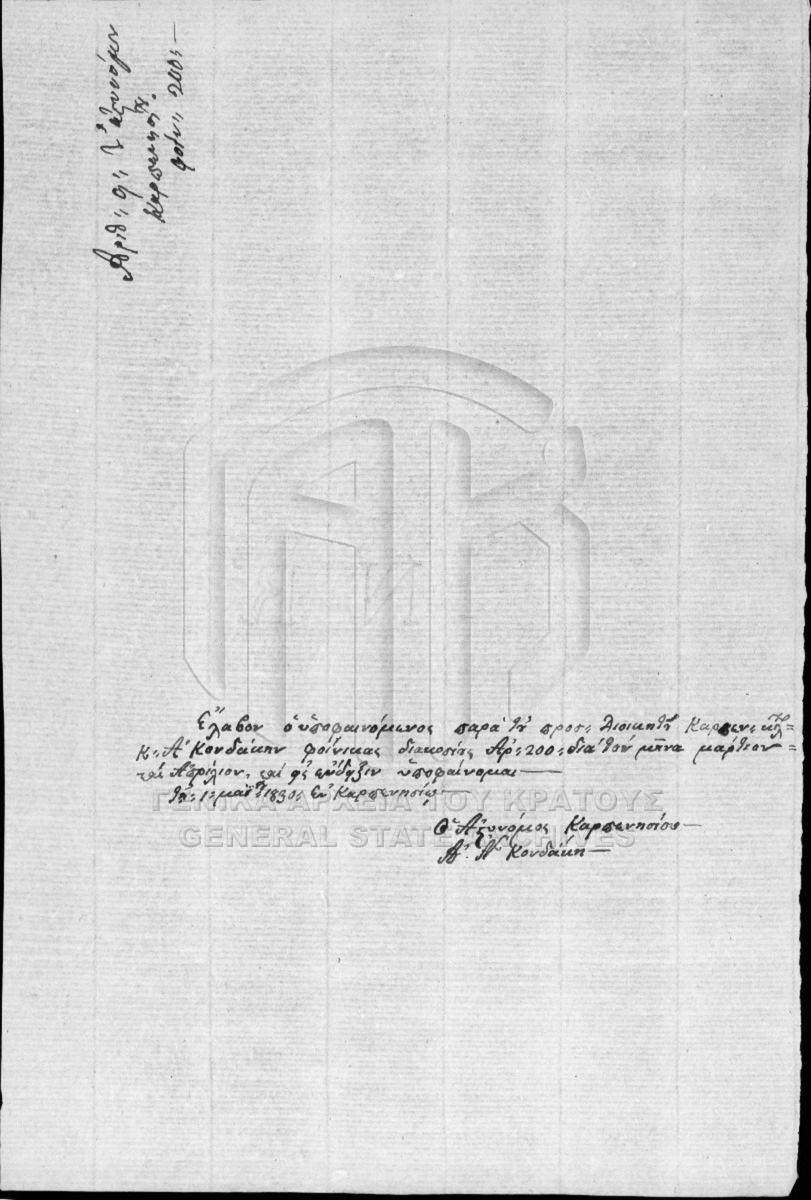 Αριθ: 9: τ' αστυνόμου
Καρπενησίου
φοίν: 200:—
Ἔλαβον ὁ ὑποφαινόμωνος παρὰ τοῦ προσ: Διοικητοῦ Καρπεν:
Κ: Α Κονδάκην φοίνικας διακοσίης Αρ: 200: διὰ τὸν μῆνα μάρτιον
καὶ Απρίλιον, καὶ εἰς ἔνδηξιν ὑποφαίνομαι—
τῇ: 1: μαΐου 1830: Ἐν Καρπενησίῳ—
Ὁ Ἀστυνόμος Καρπενησίου—
Κονδάκη—
ΓΕΝΙΚΑ ΑΡΧΕΙΑ ΤΟΥ ΚΡΑΤΟΥΣ
GENERAL STATE ARCHIVES